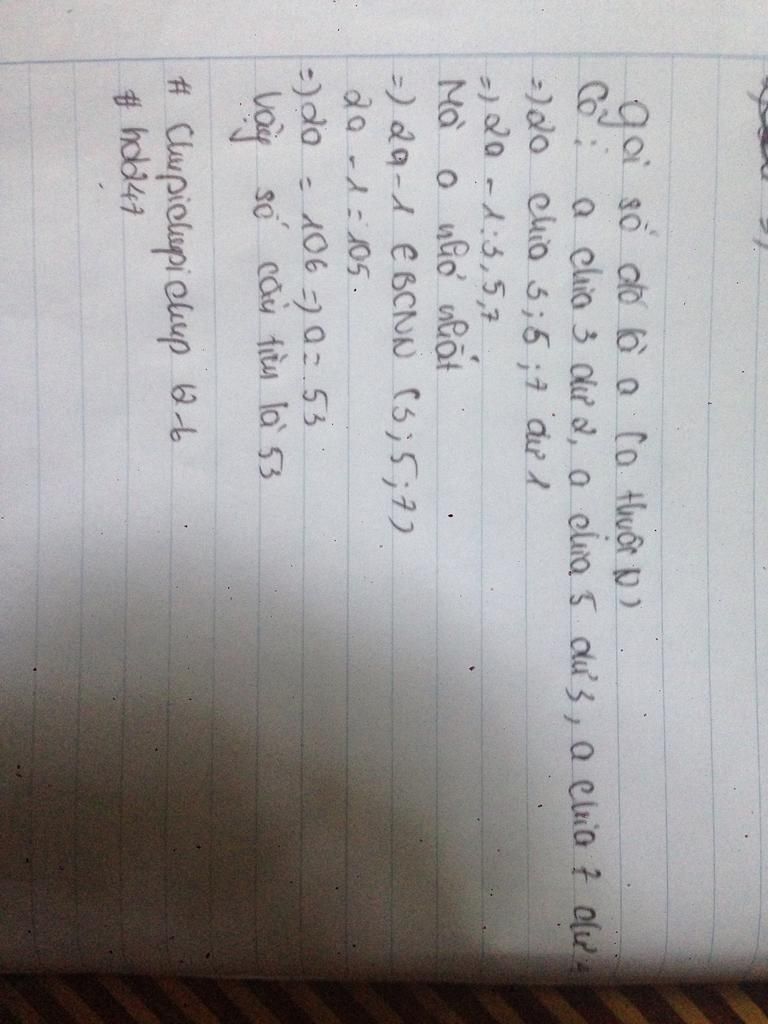 Gọi số đó là a (a thuộc N)
Có : a chia 3 dư 2, a chia 5 dư 3, a chia 7 dư 4
=) 2a chia 3 ; 5 ; 7 dư 1
=) 2a - 1 : 3, 5, 7
Mà a nhỏ nhất
=) 2a - 1 € BCNN (3 ; 5 ; 7)
2a - 1 = 105
=) 2a = 106 =) a = 53
Vậy số cần tìm là 53
# Chupichupichup 12-6
# hdd247